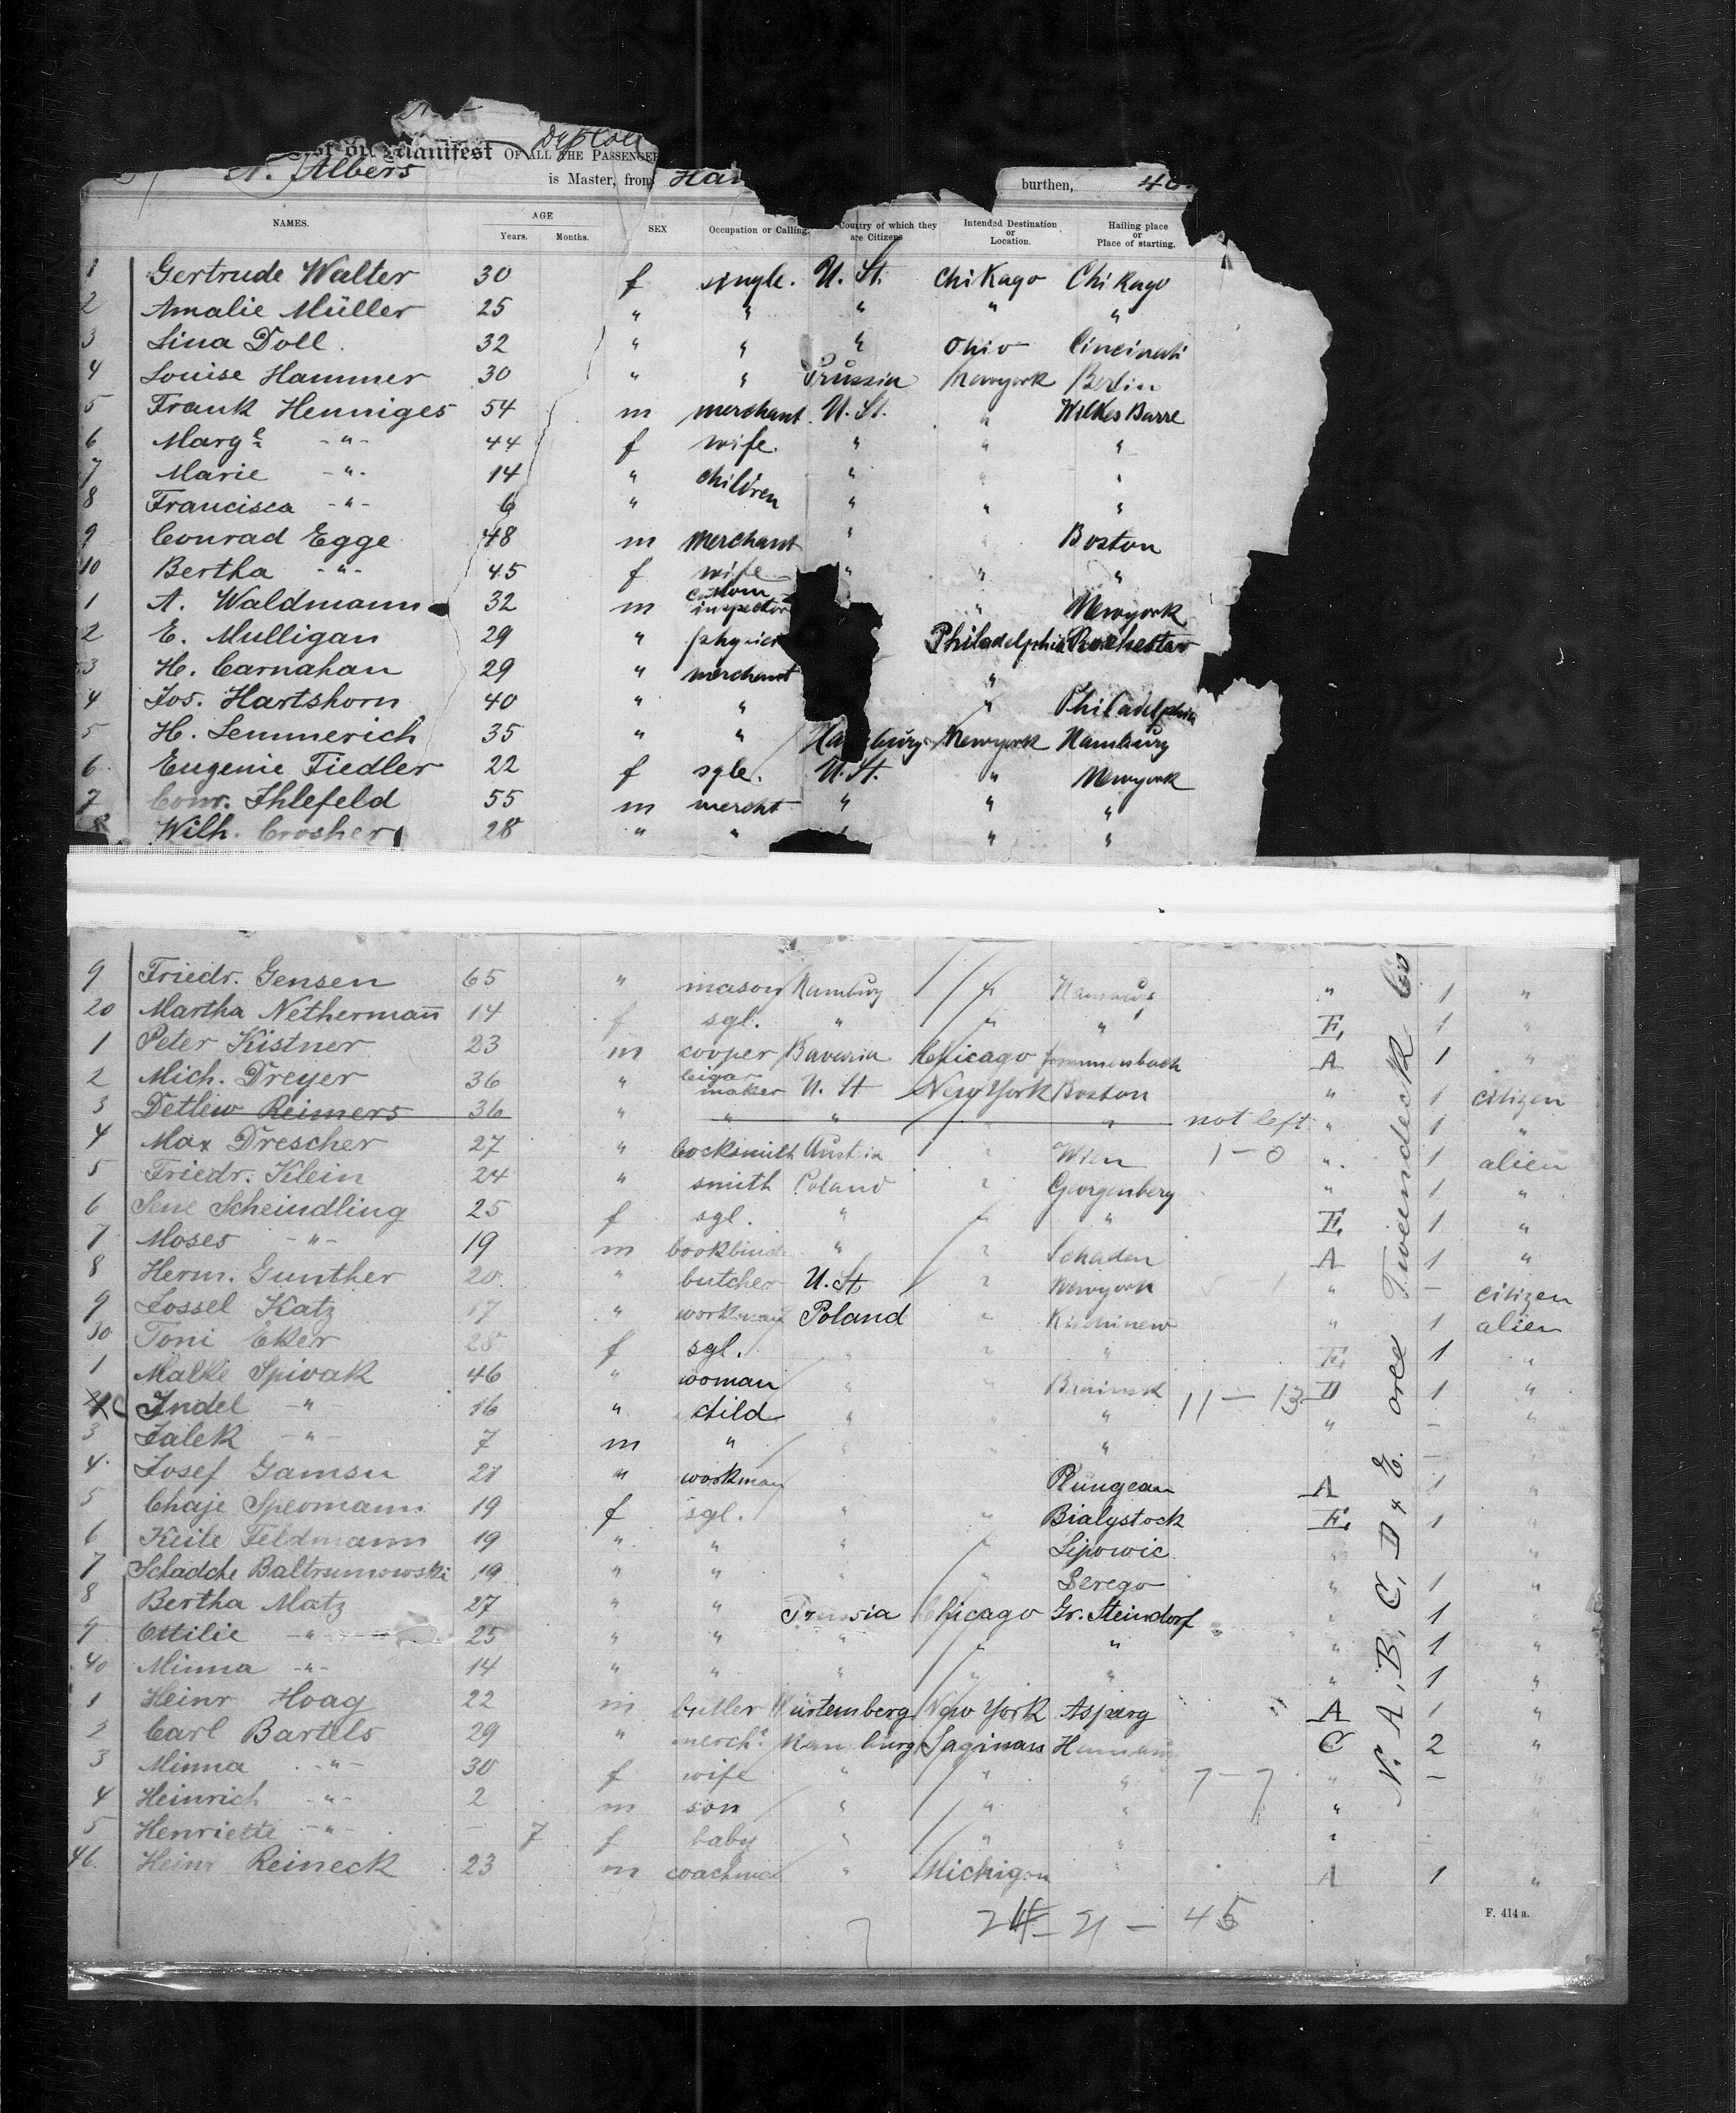 Manifest OF ALL THE PASSENGE
A. Albers is Master, from Ham burthen,
NAMES. AGE Years. Months. SEX Occupation or Calling. Country of which they are Citizens Intended Destination or Location. Hailing place or Place of starting.
1 Gertrude Walter 30 f single. U. St. Chikago Chikago
2 Amalie Müller 25 " " " " "
3 Lina Doll. 32 " " " Ohio Cincinati
4 Louise Hammer 30 " " Prussia Newyork Berlin
5 Frank Henniges 54 m merchant U. St. " Wilkes Barre
6 Marg -"- 44 f wife. " " "
7 Marie -"- 14 " children " " "
8 Francisca -"- 6 " " " "
9 Conrad Egge 48 m merchant " " Boston
10 Bertha -"- 45 f wife " " "
1 A. Waldmann 32 m custom inspector " Newyork
2 E. Mulligan 29 " physici Philadelphia Rochester
3 H. Carnahan 29 " merchant "
4 Jos. Hartshorn 40 " " " Philadelphia
5 H. Lemmerich 35 " " Ha burg Newyork Hamburg
6 Eugenie Fiedler 22 f sgle. U. St. " Newyork
7 Conr. Ihlefeld 55 m mercht " " "
8 Wilh. Crosher 28 " " " " "
9 Friedr. Gensen 65 " mason Hamburg " Hamburg "  1 "
20 Martha Nethermann 14 f sgl. " " " E, 1 "
1 Peter Kistner 23 m cooper Bavaria Chicago A 1 "
2 Mich. Dreyer 36 " Cigar maker U. St New York Boston " 1 citizen
3 Detlew Reimers 36 " " " " " not left " 1 "
4 Max Drescher 27 " Locksmith Austria " Wien 1-0 " 1 alien
5 Friedr. Klein 24 " smith Poland " Georgenberg " 1 "
6 Scheindling 25 f sgl. " " " E, 1 "
7 Moses -"- 19 m bookbind " " Schaden A 1 "
8 Herm. Gunther 20 " butcher U. St " Newyork " - citizen
9 Lossel Katz 17 " workman Poland " Kischinew " 1 alien
30 Toni Eker 28 f sgl. " " " E, 1 "
1 Malke Spivak 46 " woman " " 11-13 D 1 "
Indel -"- 16 " child " " " " - "
3 Falek -"- 7 m " " " " -
4 Josef Gamsu 21 " workman A 1 "
5 Chaje Speomann 19 f sgl. " " Bialystock E, 1 "
6 Keile Feldmann 19 " " " " Lipowic " "
7 Schadche Baltrumowski 19 " " " " Serego " 1 "
8 Bertha Matz 27 " " Prussia Chicago Gr. Steindorf " 1 "
9 Ottilie -"- 25 " " " " " " 1 "
40 Minna -"- 14 " " " " " " 1 "
1 Heinr Hoag 22 m butler Würtemberg New York Asparg A 1 "
2 Carl Bartels 29 " merch. Hamburg Saginaw Hamburg C 2 "
3 Minna -"- 30 f wife " " " 7-7 " - "
4 Heinrich -"- 2 m son " " " "
5 Henriette -"- - 7 f baby " " " "
46. Heinr Reineck 23 m " Michigan " A 1 "
N. A, B, C, D & E. orle Twendeck Co
24 - 21 - 45
F. 414 a.